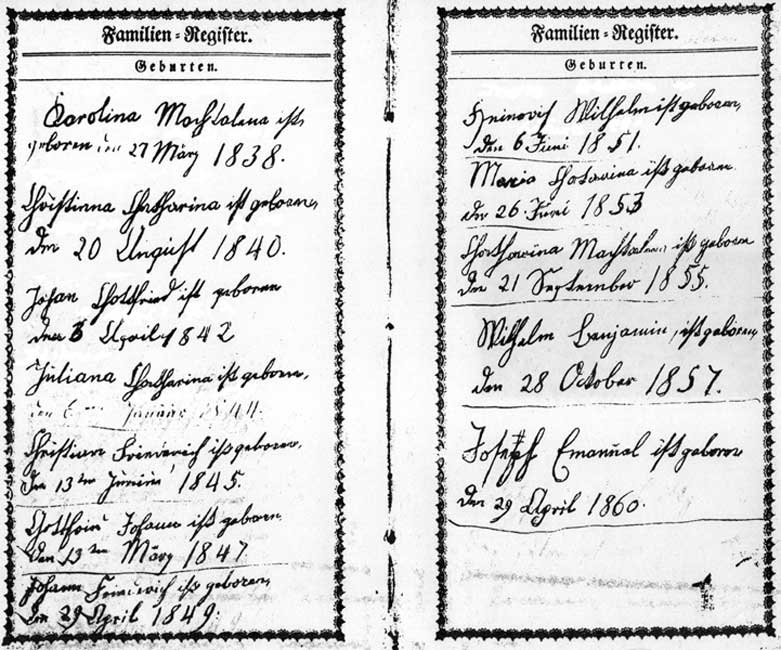 Familien=Register.
Geburten.
Carolina Machtalena ist
geboren den 27 März 1838.
Christinna Chatharina ist geboren,
den 20 August 1840.
Johan Gottfried ist geboren
den 3 April 1842
Juliana Chatharina ist geboren,
den Januar 1844.
Christian ist geboren,
den 13ten 1845.
Johann ist geboren
den 13ten März 1847
Johann ist geboren,
den 29 April 1849.
Familien=Register.
Geburten.
Heinrich Wilhelm ist geboren,
den 6 Juni 1851.
Maria ist geboren
den 26 Juni 1853
Chatharina Machtalena ist geboren
den 21 September 1855.
Wilhelm Benjamin, ist geboren,
den 28 October 1857.
Joseph Emanual ist geboren
den 29 April 1860.